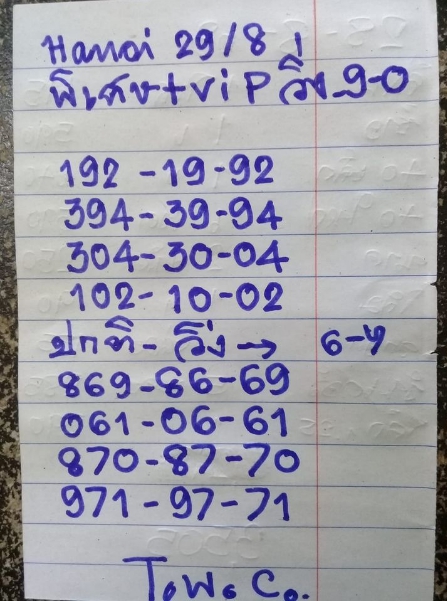 Hanoi 29/8
พิเศษ+ViP วิ่ง 9-0
192 -19-92
394-39-94
304-30-04
102-10-02
ปกติ - วิ่ง → 6-7
869-86-69
061-06-61
870-87-70
971-97-71